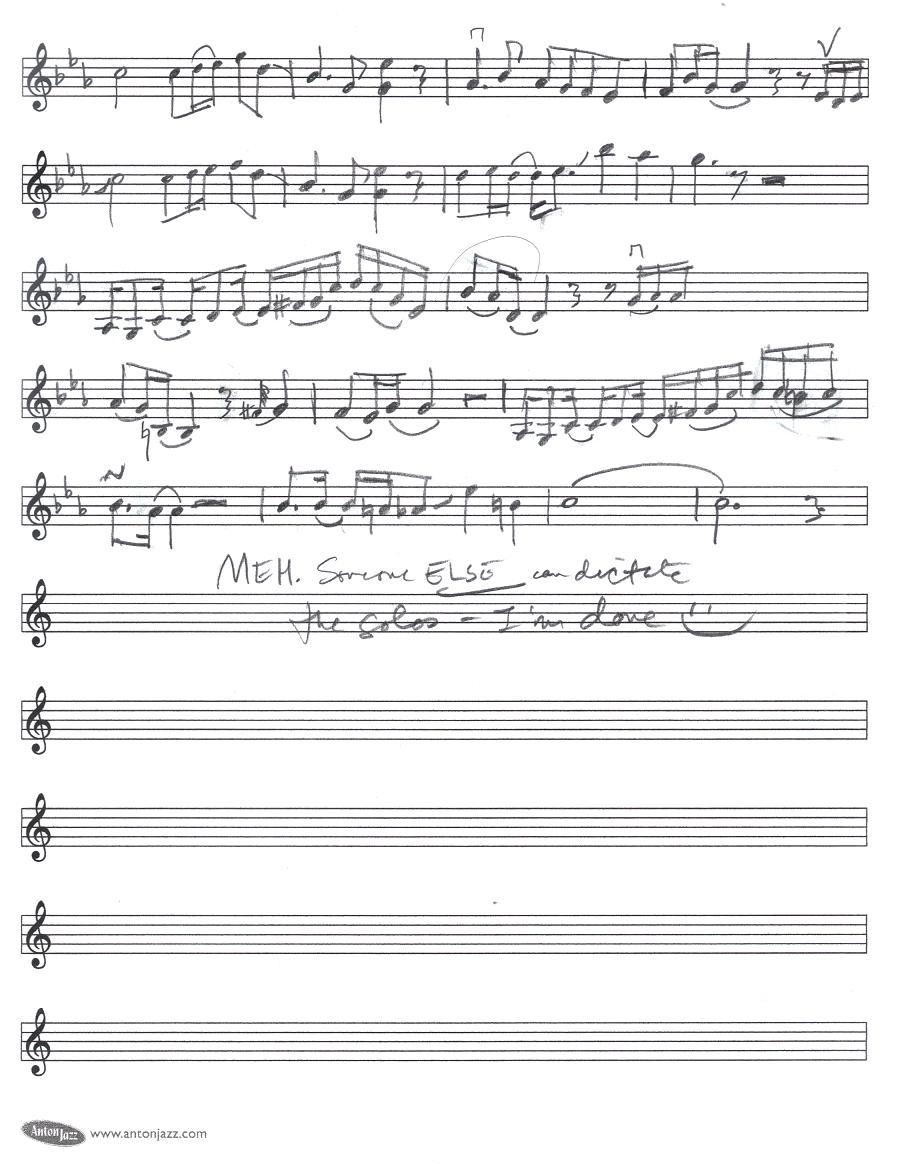 MEH. Someone ELSE can dictate
the solos - I'm done
Anton Jazz www.antonjazz.com